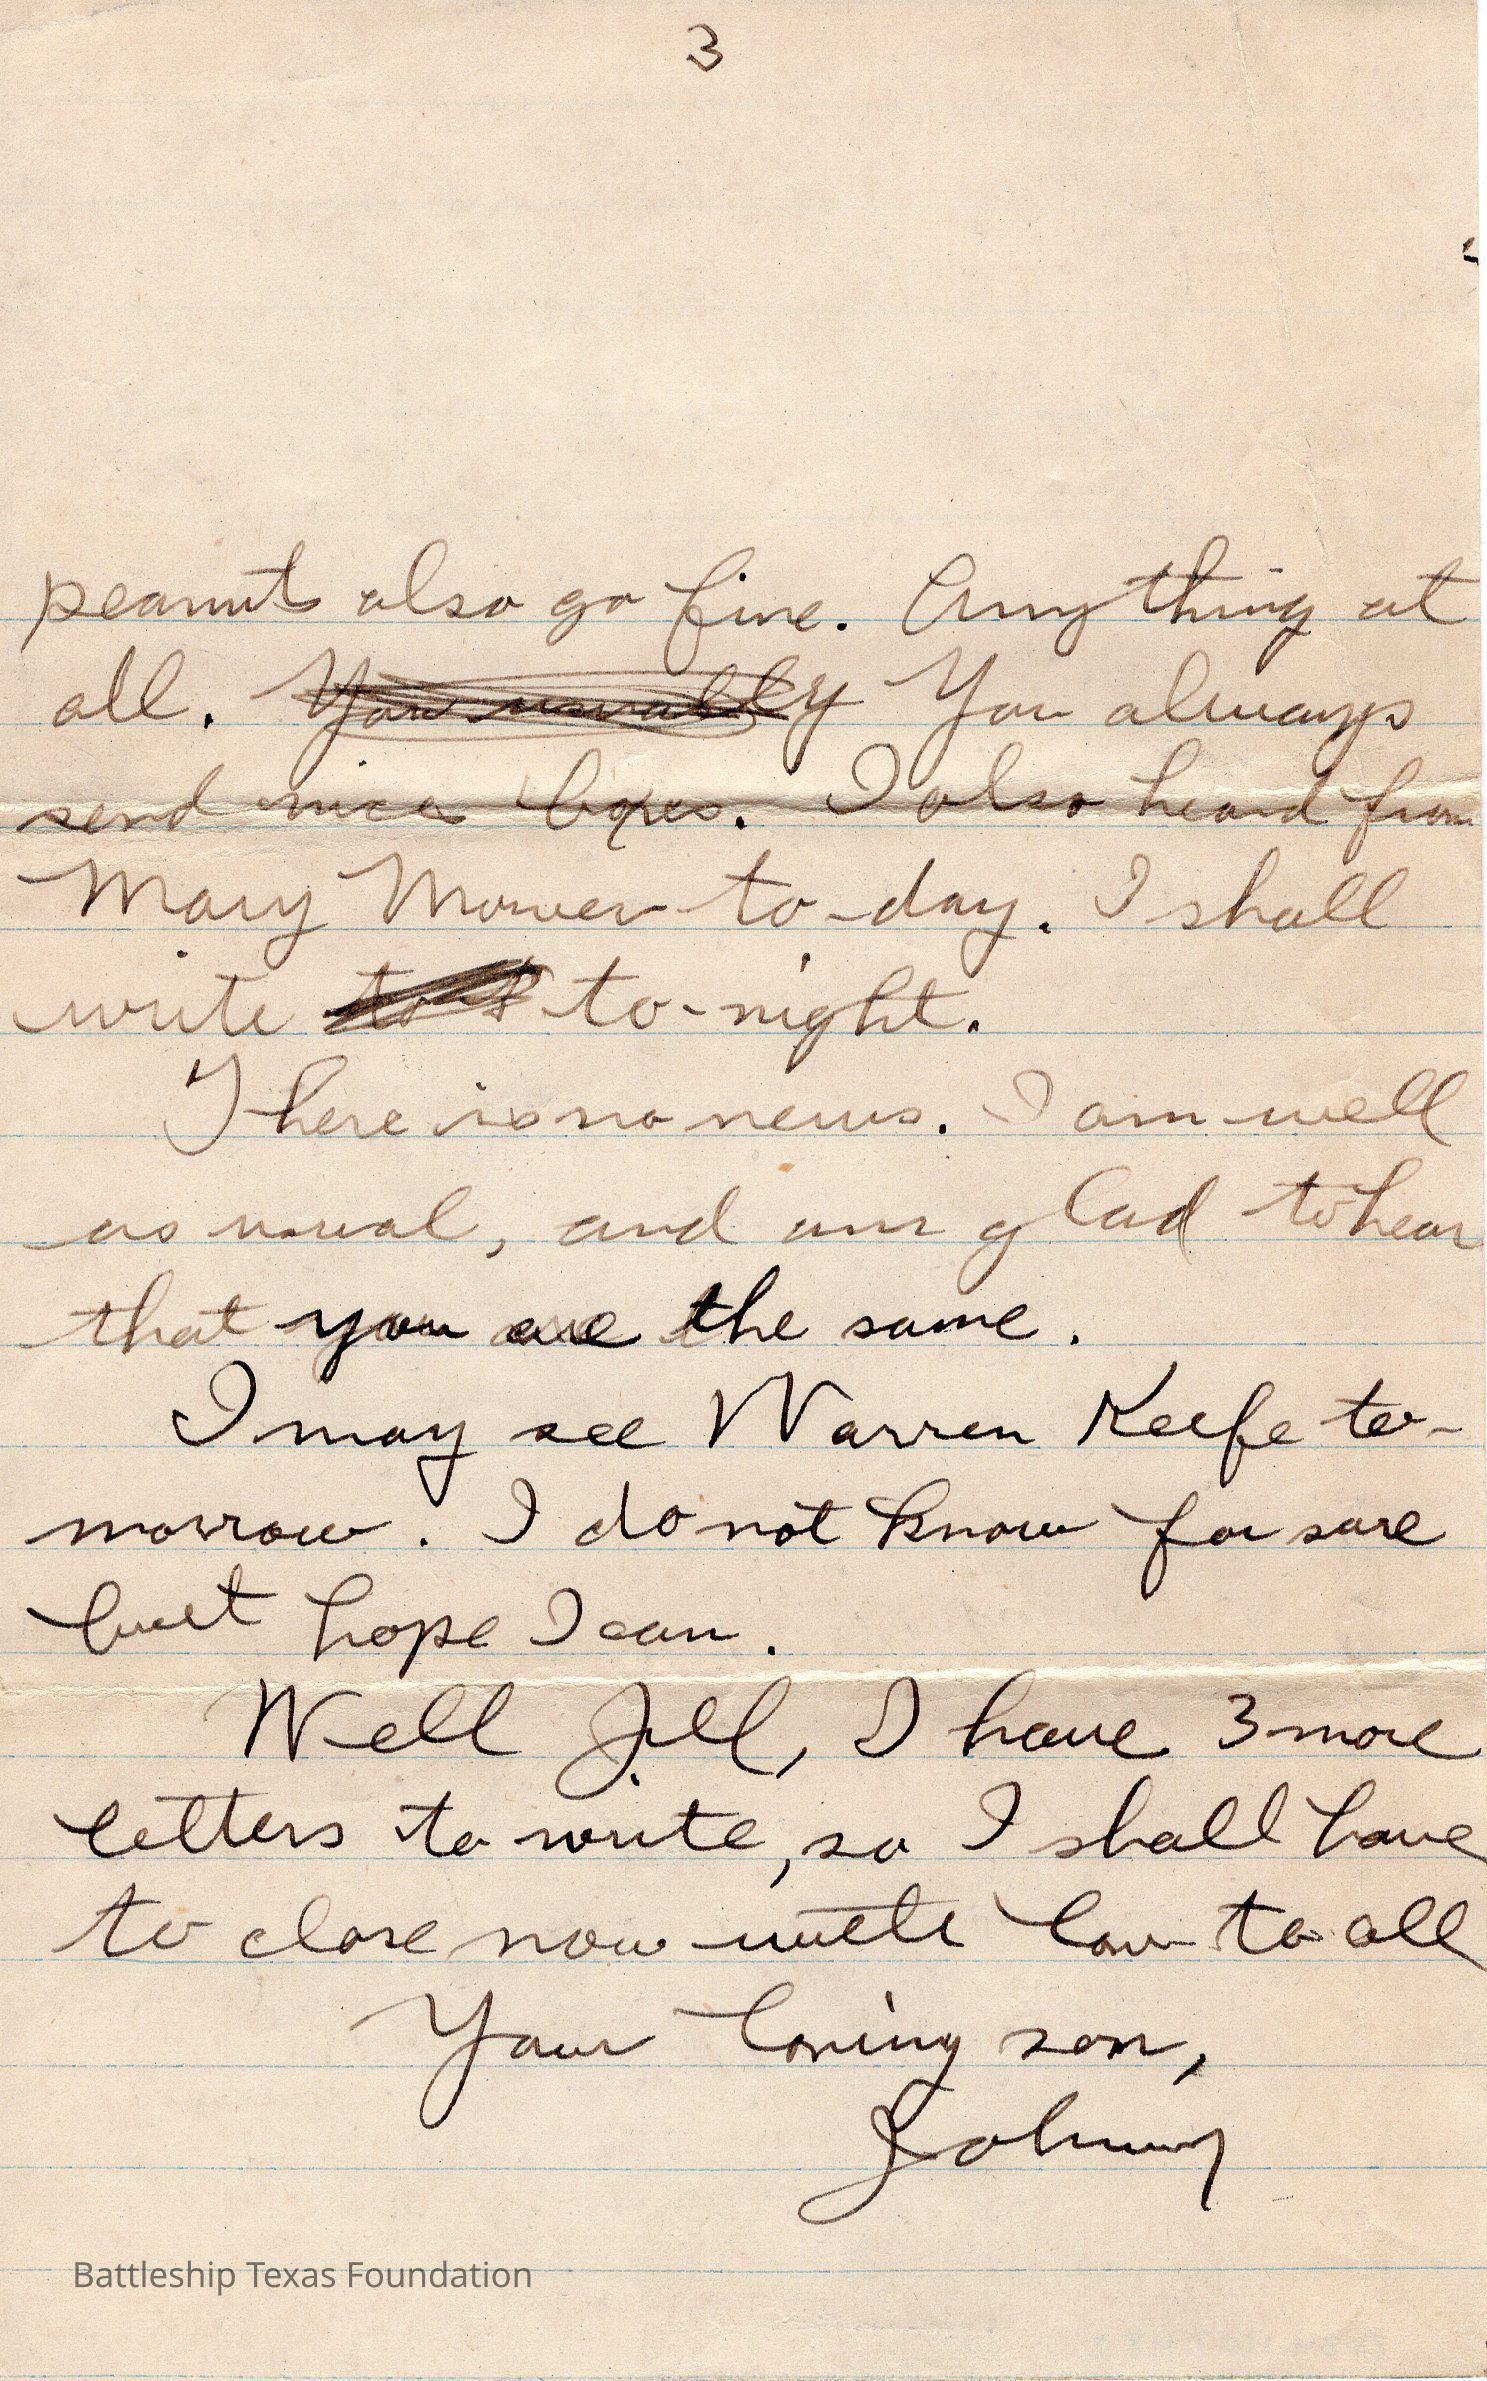 3
peanuts also go fine. Anything at
all. You usually You always
send nice boxes. I also heard from
Mary Mower to-day. I shall
write to-night.
There is no news. I am well
as usual, and am glad to hear
that you are the same.
I may see Warren Keefe to-
morrow. I do not know for sure
but hope I can.
Well Jill, I have 3 more
letters to write, so I shall have
to close now with love to all
Your loving son,
Johnny
Battleship Texas Foundation